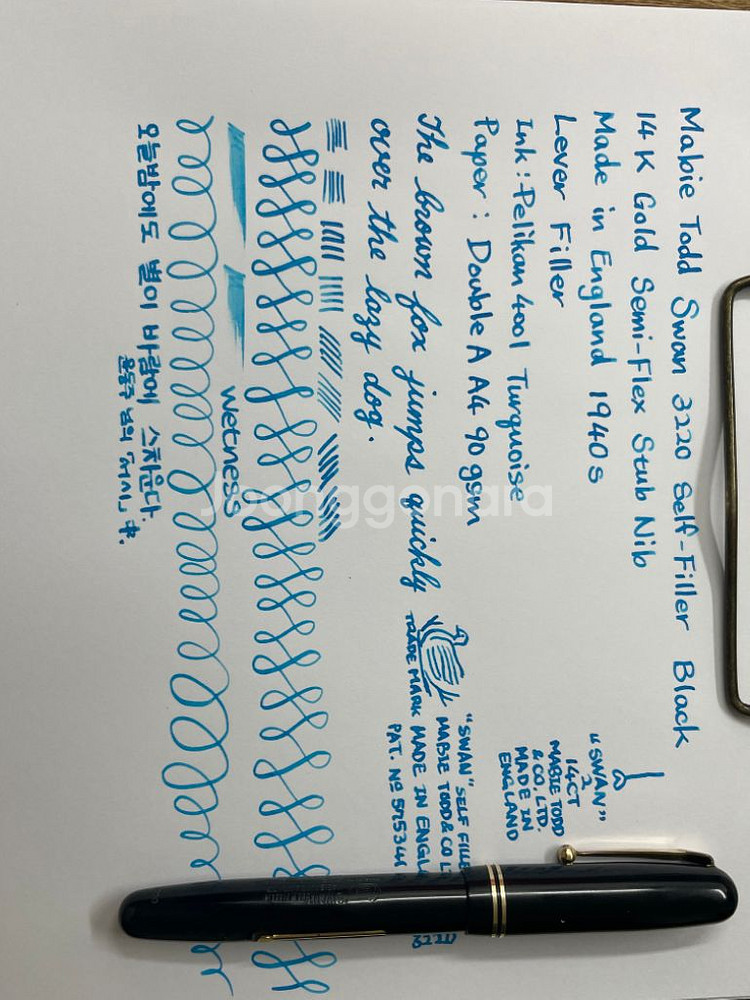 Mabie Todd Swan 3220 Self-Filler Black
14K Gold Semi-Flex Stub Nib
Made in England 1940s
Lever Filler
Ink : Pelikan 4001 Turquoise
Paper : Double A A4 90gsm
The brown fox jumps quickly
over the lazy dog.
Wetness
오늘밤에도 별이 바람에 스치운다.
윤동주 님의 「서시」 中.
"SWAN"
2
14CT
MABIE TODD
& CO. LTD.
MADE IN
ENGLAND
"SWAN" SELF FILLE
MABIE TODD & CO LT
TRADE MARK MADE IN ENGL
PAT. Nº
Joonggonara